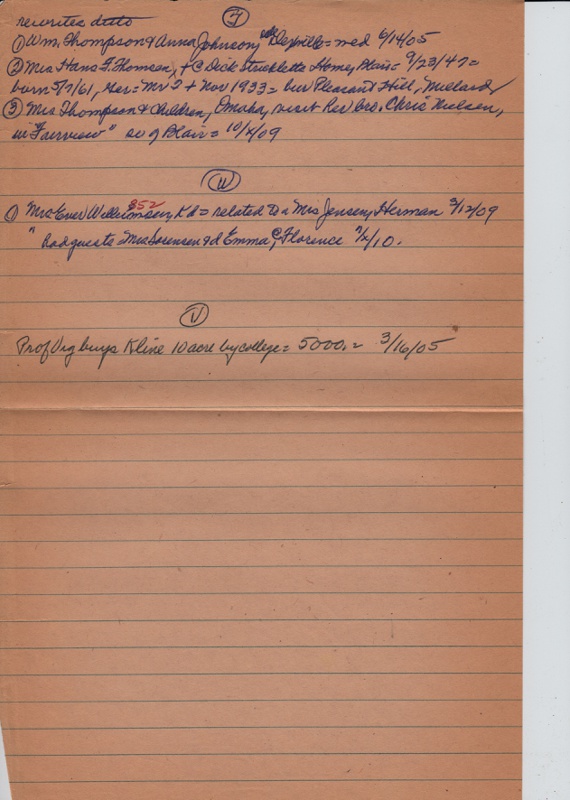 rewrites ditto
T
① Wm. Thompson & Anna Johnson, Dexville = med 6/14/05
② Mrs Hans F. Thomsen, + C Dick Stricklett's Home, Blair = 9/23/47 =
born 5/7/61, Mr T + Nov 1933 = bur Pleasant Hill, Millard
③ Mrs Thompson & children, Omaha, visit Rev bro. Chris Nielsen,
in "Fairview" so of Blair = 10/x/09
W
① Mrs Ever Williamsen, 352 Kd = related to a Mrs Jensen, Herman 3/12/09
" had guests = Mrs Sorensen & d Emma, Florence x/10.
V
Prof Vig buys Kline 10 acre by college = 5000.= 3/16/05